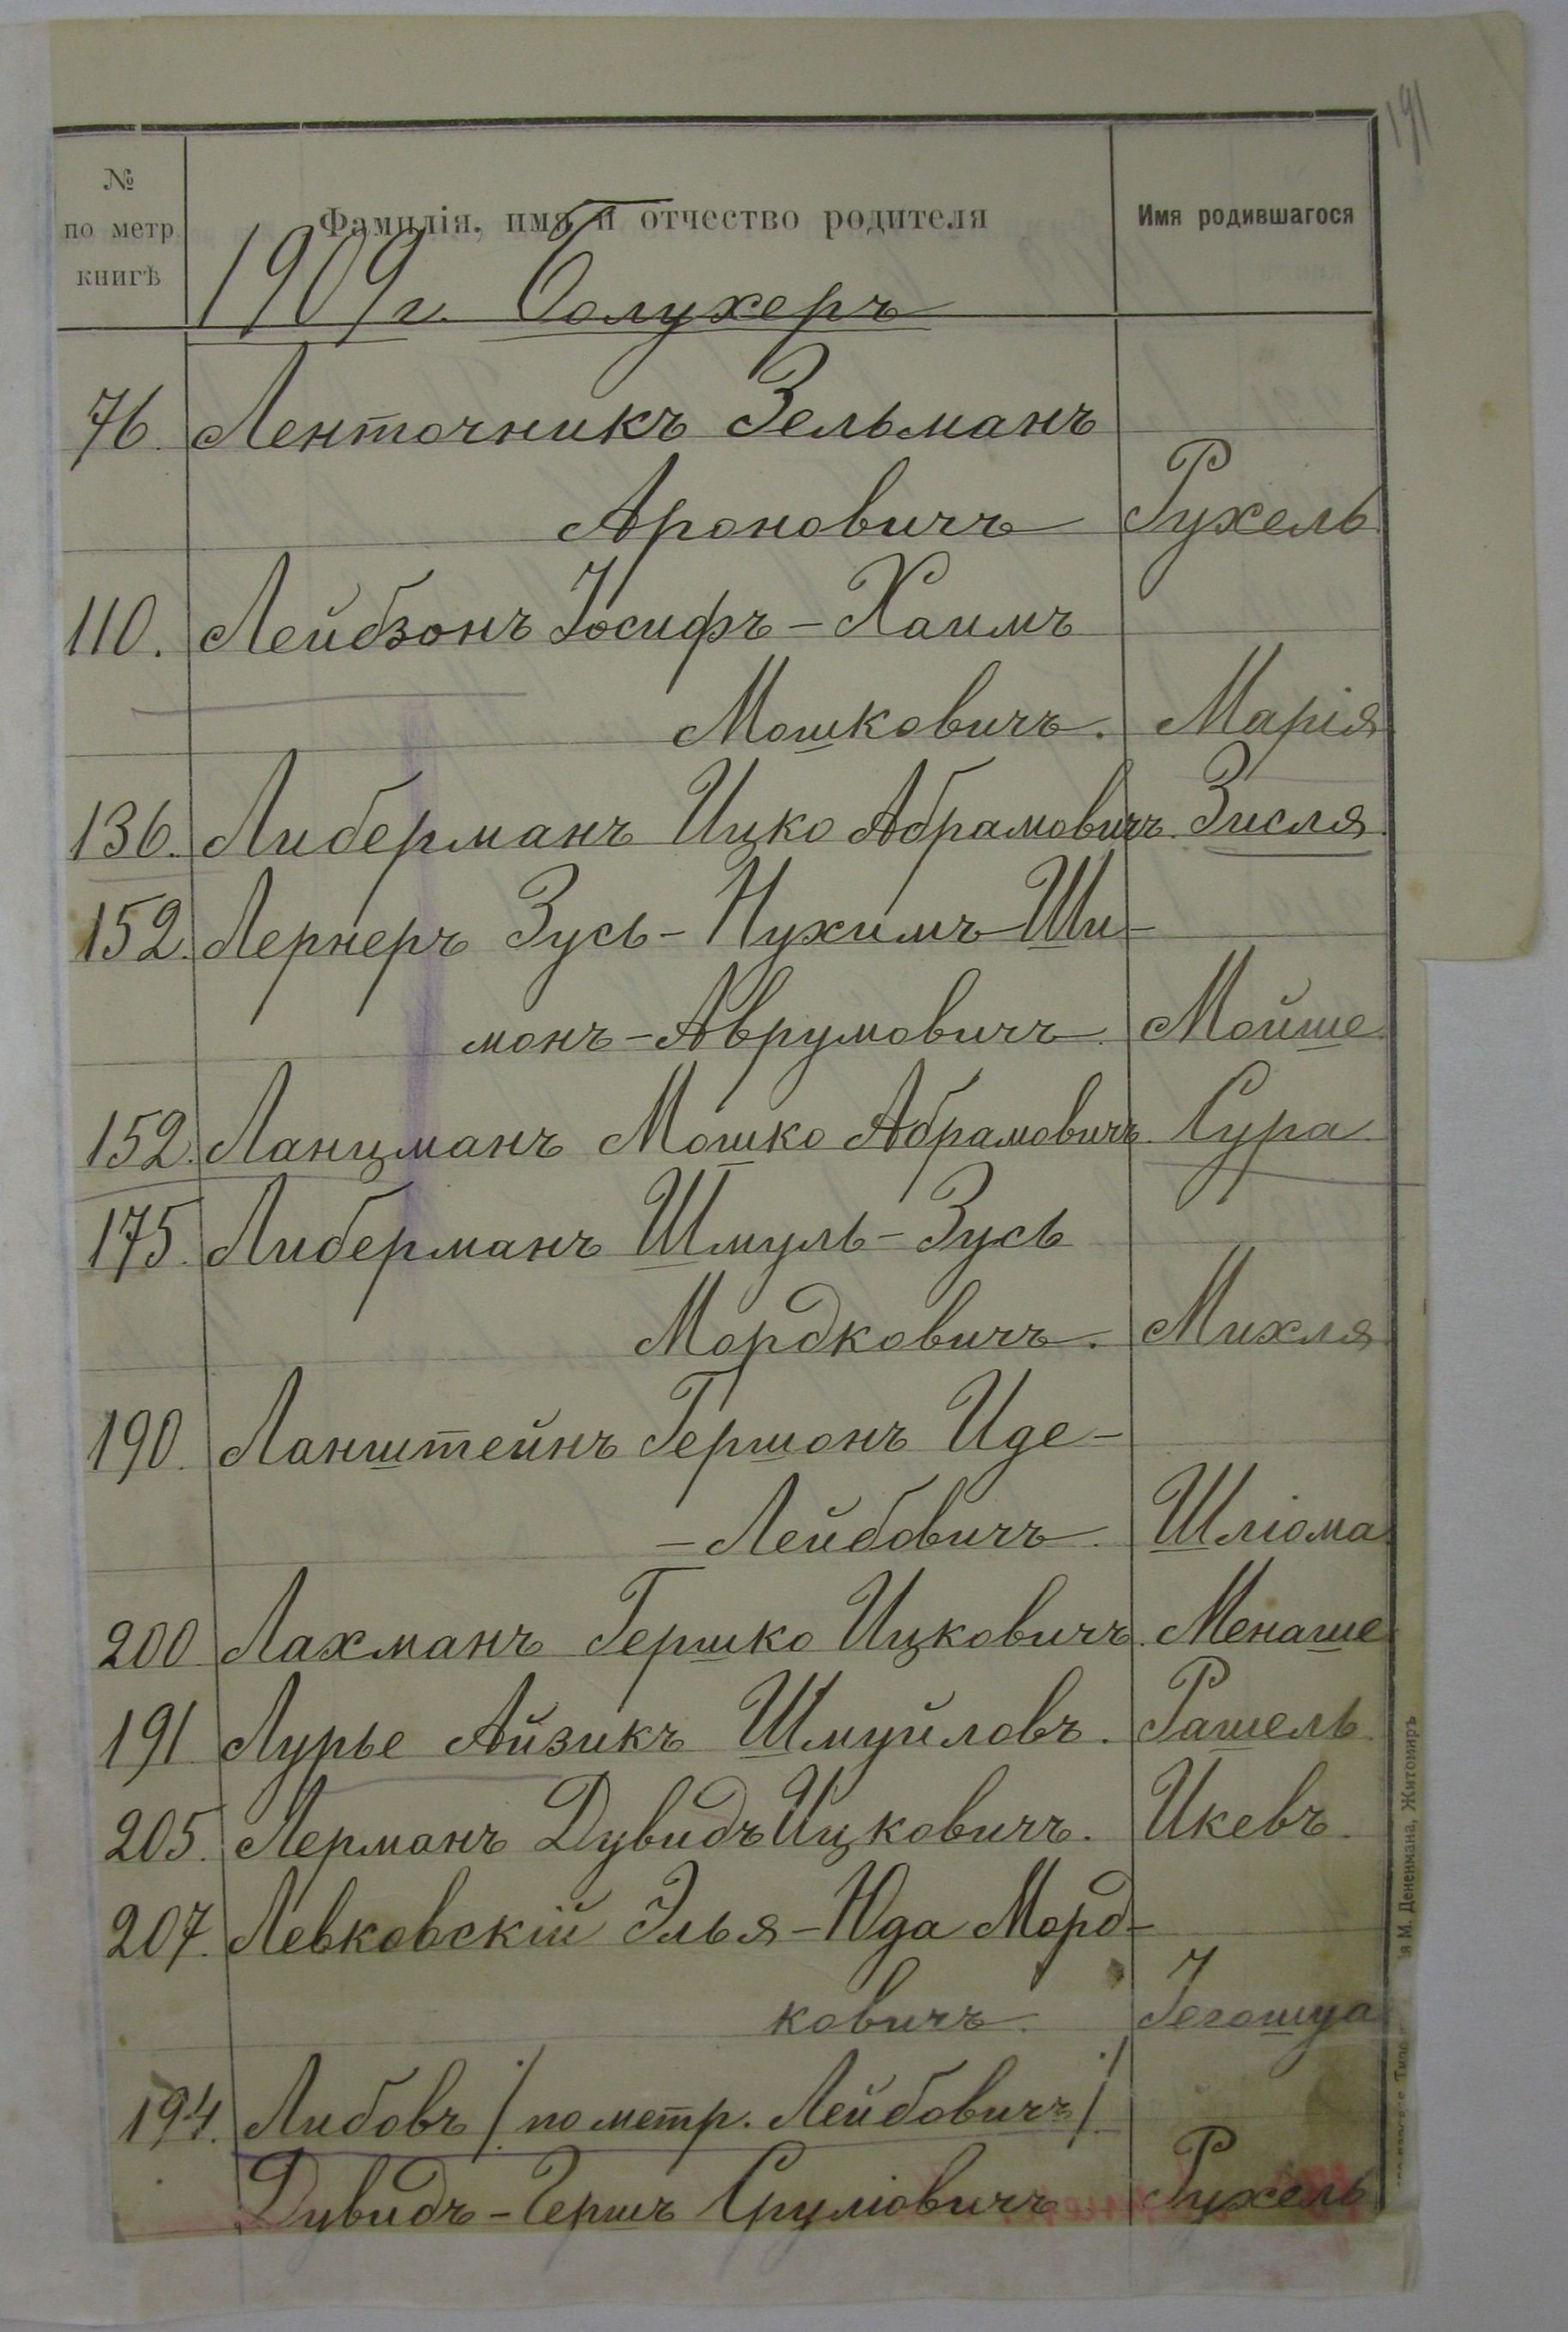 191
№ по метр. книгѣ
Фамилія, имя и отчество родителя
Имя родившагося
1909 г.
76. Ленточникъ Зельманъ
Ароновичъ Рухель
110. Лейбзонъ Іосифъ-Хаимъ
Мошковичъ. Марія
136. Либерманъ Ицко Абрамовичъ. Зисля
152. Лернеръ Зусь-Нухимъ-Ши-
монъ-Аврумовичъ. Мойше
152. Ланцманъ Мошко Абрамовичъ. Сура
175. Либерманъ Шмуль-Зусь
Мордковичъ. Михля
190. Ланштейнъ Гершонъ Иде-
-Лейбовичъ. Шліома
200 Лахманъ Гершко Ицковичъ. Менаше
191 Лурье Айзикъ Шмуйловъ. Рашель
205. Лерманъ Дувидъ Ицковичъ. Икевъ.
207. Левковскій Элья-Юда Морд-
ковичъ. Іегошуа
194. Либовъ /по метр. Лейбовичъ/
Дувидъ-Гершъ Сруліовичъ Рухель
М. Дененмана, Житомиръ